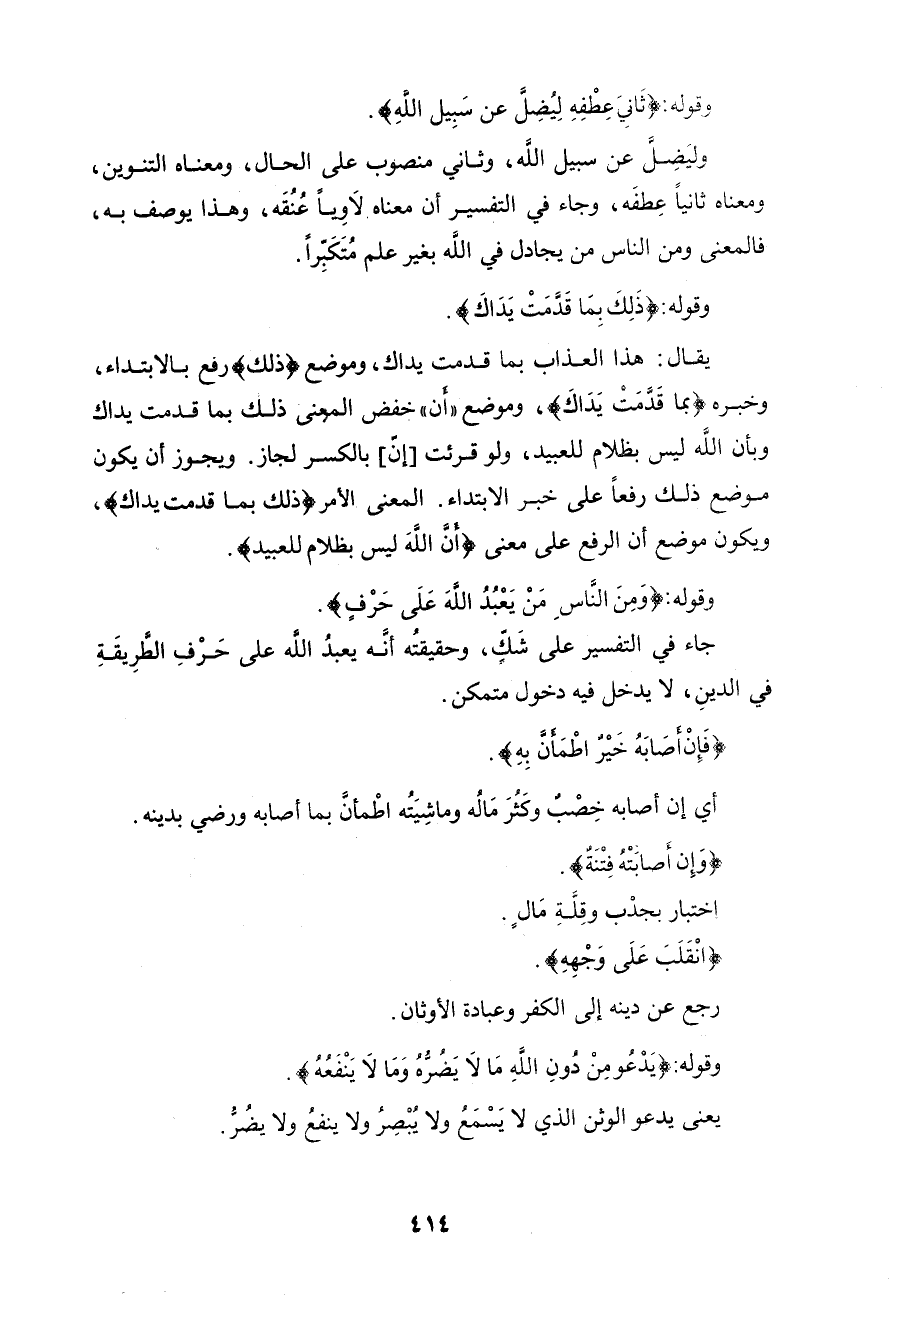 وقوله: ﴿ثَانِيَ عِطْفِهِ لِيُضِلَّ عن سَبِيل اللَّهِ﴾.
وليَضِلَّ عن سبيل اللَّه، وثاني منصوب على الحال، ومعناه التنوين،
ومعناه ثانياً عِطفَه، وجاء في التفسير أن معناه لَاوِياً عُنُقَه، وهذا يوصف به،
فالمعنى ومن الناس من يجادل في اللَّه بغير علم مُتَكَبِّراً.
وقوله: ﴿ذَلِكَ بِمَا قَدَّمَتْ يَدَاكَ﴾.
يقال: هذا العذاب بما قدمت يداك، وموضع ﴿ذلك﴾ رفع بالابتداء،
وخبره ﴿بِمَا قَدَّمَتْ يَدَاكَ﴾، وموضع «أن» خفض المعنى ذلك بما قدمت يداك
وبأن اللَّه ليس بظلام للعبيد، ولو قرئت [إنّ] بالكسر لجاز. ويجوز أن يكون
موضع ذلك رفعاً على خبر الابتداء. المعنى الأمر ﴿ذلك بما قدمت يداك﴾،
ويكون موضع أن الرفع على معنى ﴿أَنَّ اللَّهَ ليس بظلام للعبيد﴾.
وقوله: ﴿وَمِنَ النَّاسِ مَنْ يَعْبُدُ اللَّهَ عَلَى حَرْفٍ﴾.
جاء في التفسير على شَكٍّ، وحقيقتُه أنَّه يعبدُ اللَّه على حَرْفِ الطَّرِيقَةِ
في الدينِ، لا يدخل فيه دخول متمكن.
﴿فَإِنْ أَصَابَهُ خَيْرٌ اطْمَأَنَّ بِهِ﴾.
أي إن أصابه خِصْبٌ وكَثُرَ مَالُه وماشِيَتُه اطْمأنَّ بما أصابه ورضي بدينه.
﴿وَإِن أَصابَتْهُ فِتْنَةٌ﴾.
اختبار بجدْب وقِلَّةِ مَالٍ.
﴿انْقَلَبَ عَلَى وَجْهِهِ﴾.
رجع عن دينه إلى الكفر وعبادة الأوثان.
وقوله: ﴿يَدْعُو مِنْ دُونِ اللَّهِ مَا لَا يَضُرُّهُ وَمَا لَا يَنْفَعُهُ﴾.
يعنى يدعو الوثن الذي لا يَسْمَعُ ولا يُبْصِرُ ولا ينفعُ ولا يضُرُّ.
٤١٤